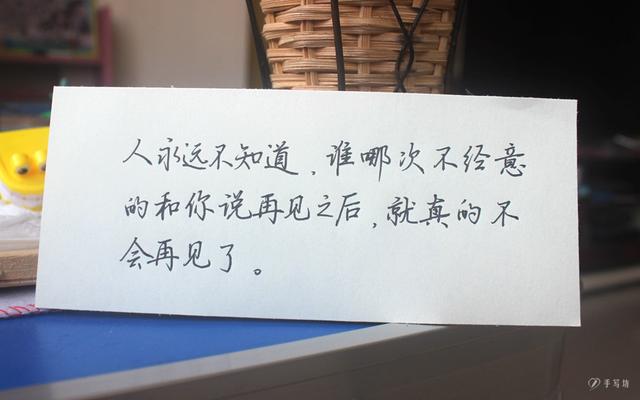 人永远不知道，谁哪次不经意
的和你说再见之后，就真的不
会再见了。
手写坊